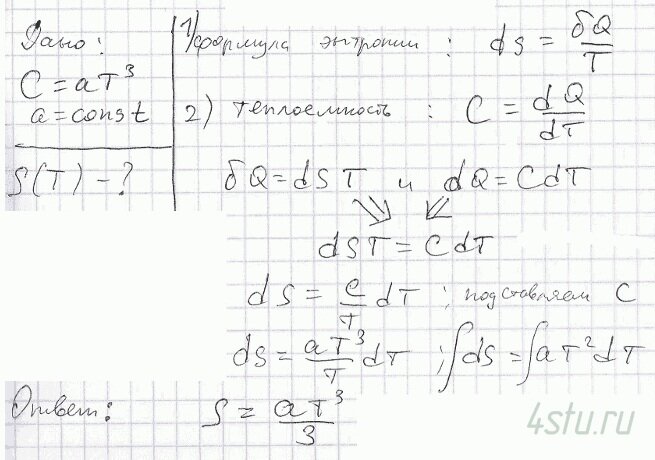 Дано:
C = aT³
a = const
S(T) - ?
1) формула энтропии : dS = δQ/T
2) теплоемкость : C = dQ/dT
δQ = dS T и dQ = C dT
dS T = C dT
dS = C/T dT ; подставляем C
dS = aT³/T dT ; ∫dS = ∫aT²dT
Ответ: S = aT³/3
4stu.ru